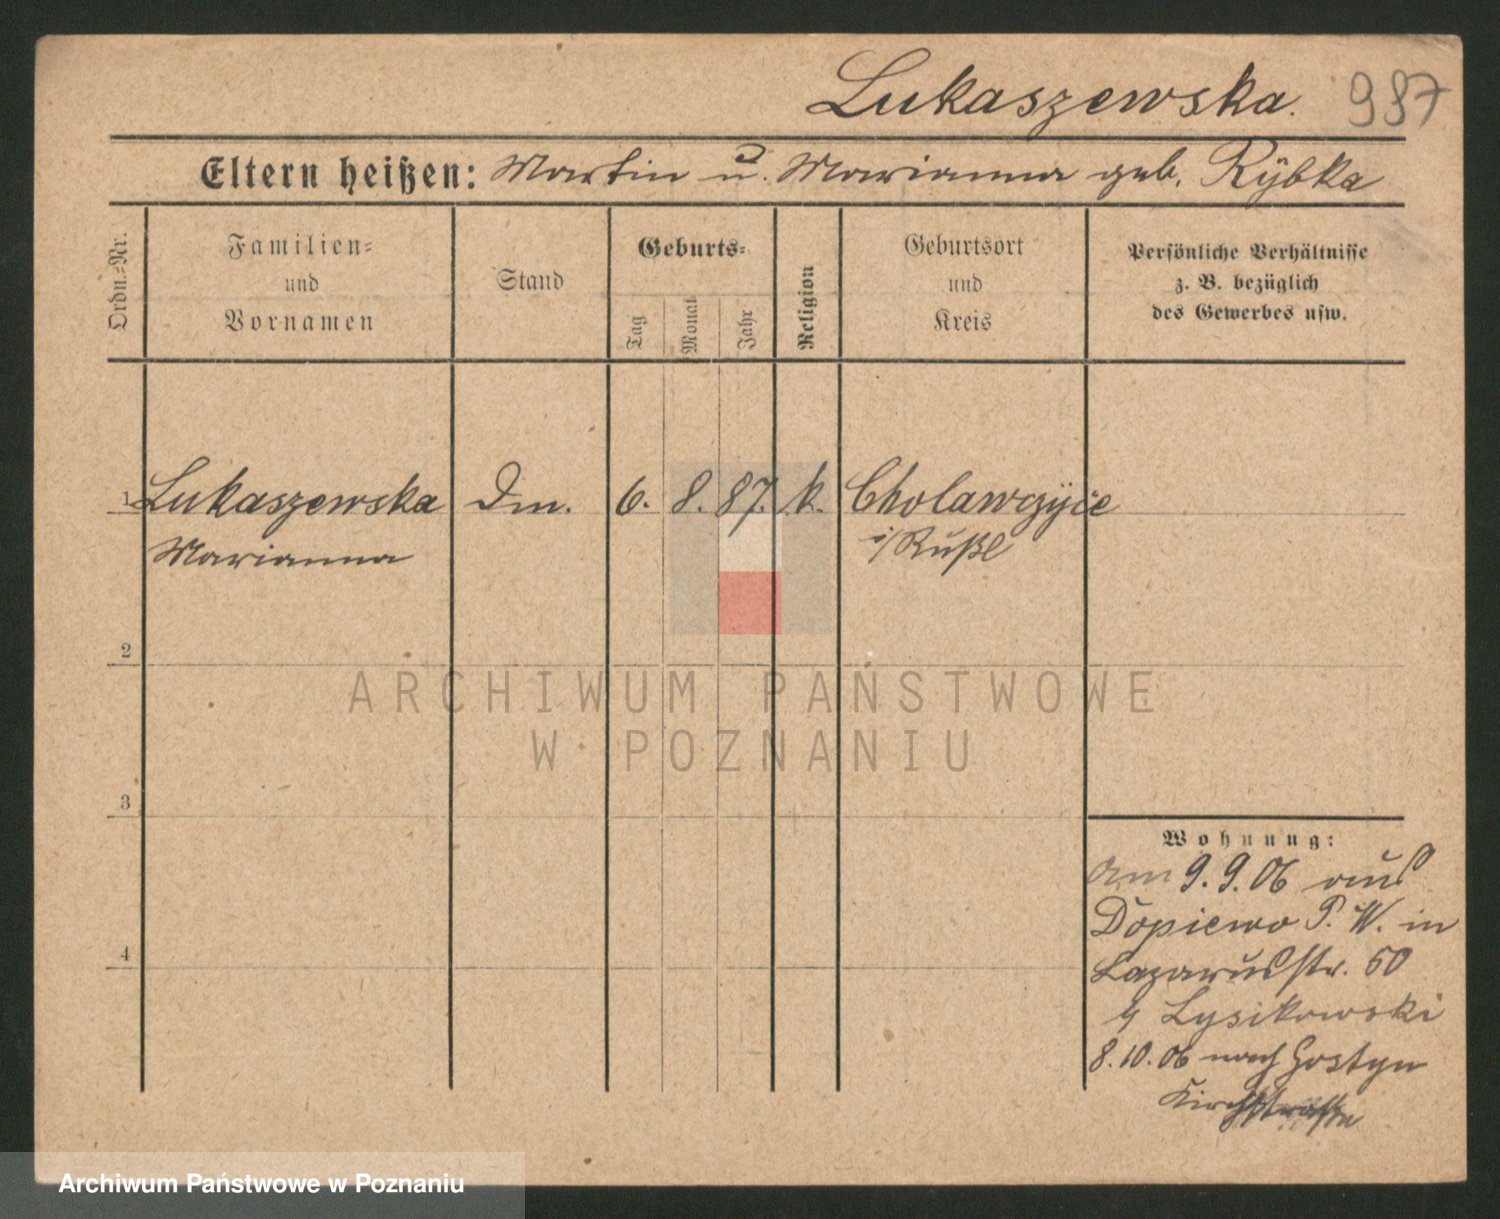 Lukaszewska. 987
Eltern heißen: Martin u. Marianna geb. Rÿbka
Ordn.=Nr.
Familien=
und
Vornamen
Stand
Geburts=
Tag
Monat
Jahr
Religion
Geburtsort
und
Kreis
Persönliche Verhältnisse
z. B. bezüglich
des Gewerbes usw.
1 Lukaszewska Dm. 6. 8. 87. k. Cholawgÿce
Marianna i/Rußl
2
ARCHIWUM PAŃSTWOWE
W POZNANIU
3
4
Wohnung:
am 9.9.06 aus
Dopiewo P. W. in
Lazarusstr. 50
b/ Lysikowski
8.10.06 nach Gostyn
Kirchstraße
Archiwum Państwowe w Poznaniu